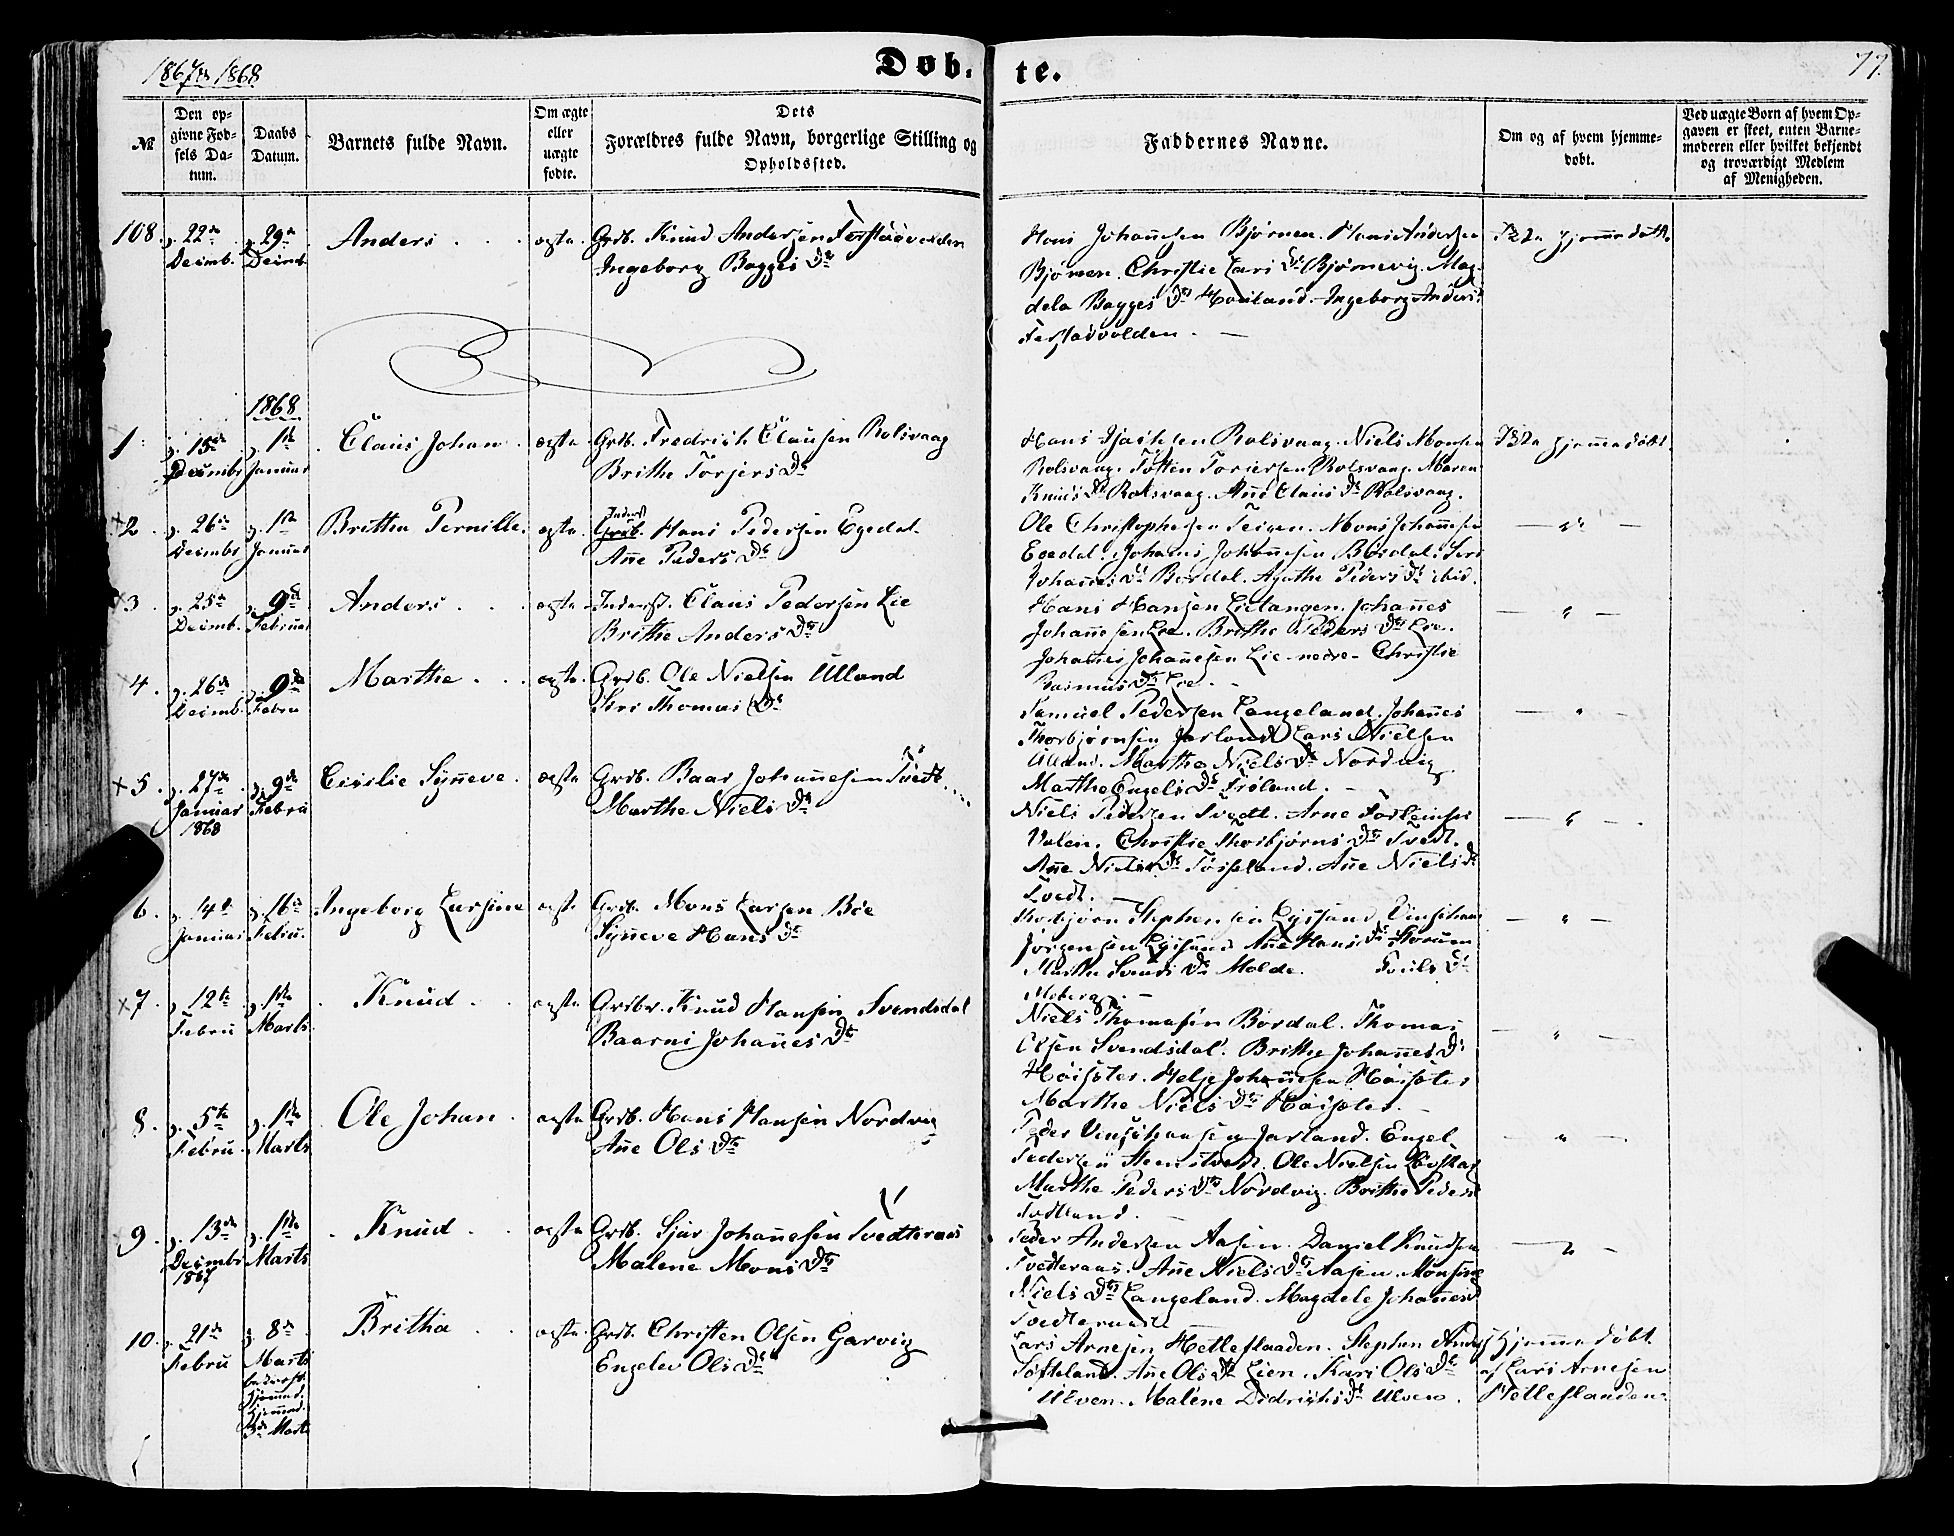 1867 & 1868
Døb-
te.
77.
No
Den op-
givne Fød-
sels Da-
tum.
Daabs
Datum.
Barnets fulde Navn.
Om ægte
eller
uægte
fødte.
Dets
Forældres fulde Navn, borgerlige Stilling og
Opholdssted.
Faddernes Navne.
Om og af hvem hjemme-
døbt.
Ved uægte Børn af hvem Op-
gaven er skeet, enten Barne-
moderen eller hvilket bekjendt
og troværdigt Medlem
af Menigheden.
108. d. 22de d. 29de Anders ægte Grdb. Knud Andersen
Decmb. Decmb Ingeborg Bagges Dr
Hans Johannesen Bjørnen. Hans Andersen Ikke hjemmedøbt.
Bjørnen. Christie Lars Dr Bjørnevig. Mag-
dela Bagges Dr Houland. Ingeborg Anders
1868
1. d. 15de d. 1ste Claus Johan ægte Grdb. Fredrich Clausen Rolsvaag
Decembr Januar Brithe Torjers Dr
Hans Rolsvaag. Niels Monsen Ikke hjemmedøbt.
Rolsvaag. Rolsvaag. Maren
Knuds Dr Rolsvaag. Ane Claus Dr Rolsvaag.
Inderst
2. d. 26de d. 1ste Britha Pernille. ægte. Grdb. Hans Pedersen Egedal
Decmbr Januar Ane Peders Dr
Ole Christophersen Teigen. Mons Johannesen — " —
Egedal. Johannes Johannesen Børdal. Siri
Johannes Dr Børdal. Agathe Peders Dr ibid.
3. d. 25de d. 9de Anders ægte Inderst. Claus Pedersen Lie
Decmb. Februar Brithe Anders Dr
Hans Hansen Lietangen. Johannes — " —
Johannesen Lie. Brithe Peders Dr Lie.
Johannes Johannesen Lie nedre Christie
Rasmus Dr Lie.
4. d. 26de d. 9de Marthe ægte. Grdb. Ole Nielsen Ulland
Decmb. Febru Siri Thomas Dr
Samuel Pedersen Langeland. Johannes — " —
Thorbjørnsen Jarland Lars Nielsen
Ulland. Marthe Niels Dr Nordvig.
Marthe Engels Dr Frøland.
5. d. 27de d. 9de Cicilie Synneve. ægte Grdb. Baar Johannesen Tvedt
Januar Febru Marthe Niels Dr
1868
Niels Pedersen Tvedt. Arne — " —
Valen. Christie Thorbjørns Dr Tvedt.
Ane Niels Dr. Ane Niels Dr
Tvedt.
6. d. 14de d. 16de Ingeborg Larsine ægte Grdb. Mons Larsen Bøe
Januar Febru. Synneve Hans Dr
Thorbjørn Stephensen Lysesund — " —
Jørgensen Lysesund Ane Hans Dr
Marthe Svends Dr Molde. Dr
Moberg.
7. d. 12te d. 1ste Knud ægte Grdbr. Knud Hansen Svendsdal
Febru Marts. Baarni Johannes Dr
Niels Thomasen Børdal. Thomas — " —
Olsen Svendsdal. Brithe Johannes Dr
Helje Johannesen
Marthe Niels Dr
8. d. 5te d. 1ste Ole Johan ægte Grdb. Hans Hansen Nordvig
Febru. Marts Ane Ols Dr
Peder Jarland. Engel — " —
Pedersen. Ole Nielsen
Marthe Peders Dr Nordvig. Brithe Peders
9. d. 13de d. 1ste Knud ægte Grdb. Sjur Johannesen Tvedteraas
Decmbr Marts Malene Mons Dr
1867
Peder Andersen Aasen. Daniel Knudsen — " —
Tvedteraas. Ane Niels Dr Aasen. Monsine
Niels Dr Langeland. Magdele Johannes Dr
Tvedteraas
10. d. 21de d. 8de Britha ægte Grdb. Christen Olsen Garvig
Febru Marts Engelev Ols Dr
hjemmed.
3de Marts
Lars Arnesen Hetleflaaden. Stephen hjemmedøbt
Søfteland. Ane Ols Dr Lien. Kari Ols Dr af Lars Arnesen
Ulven. Malene Didrichs Dr Ulven. Hetleflaaden.